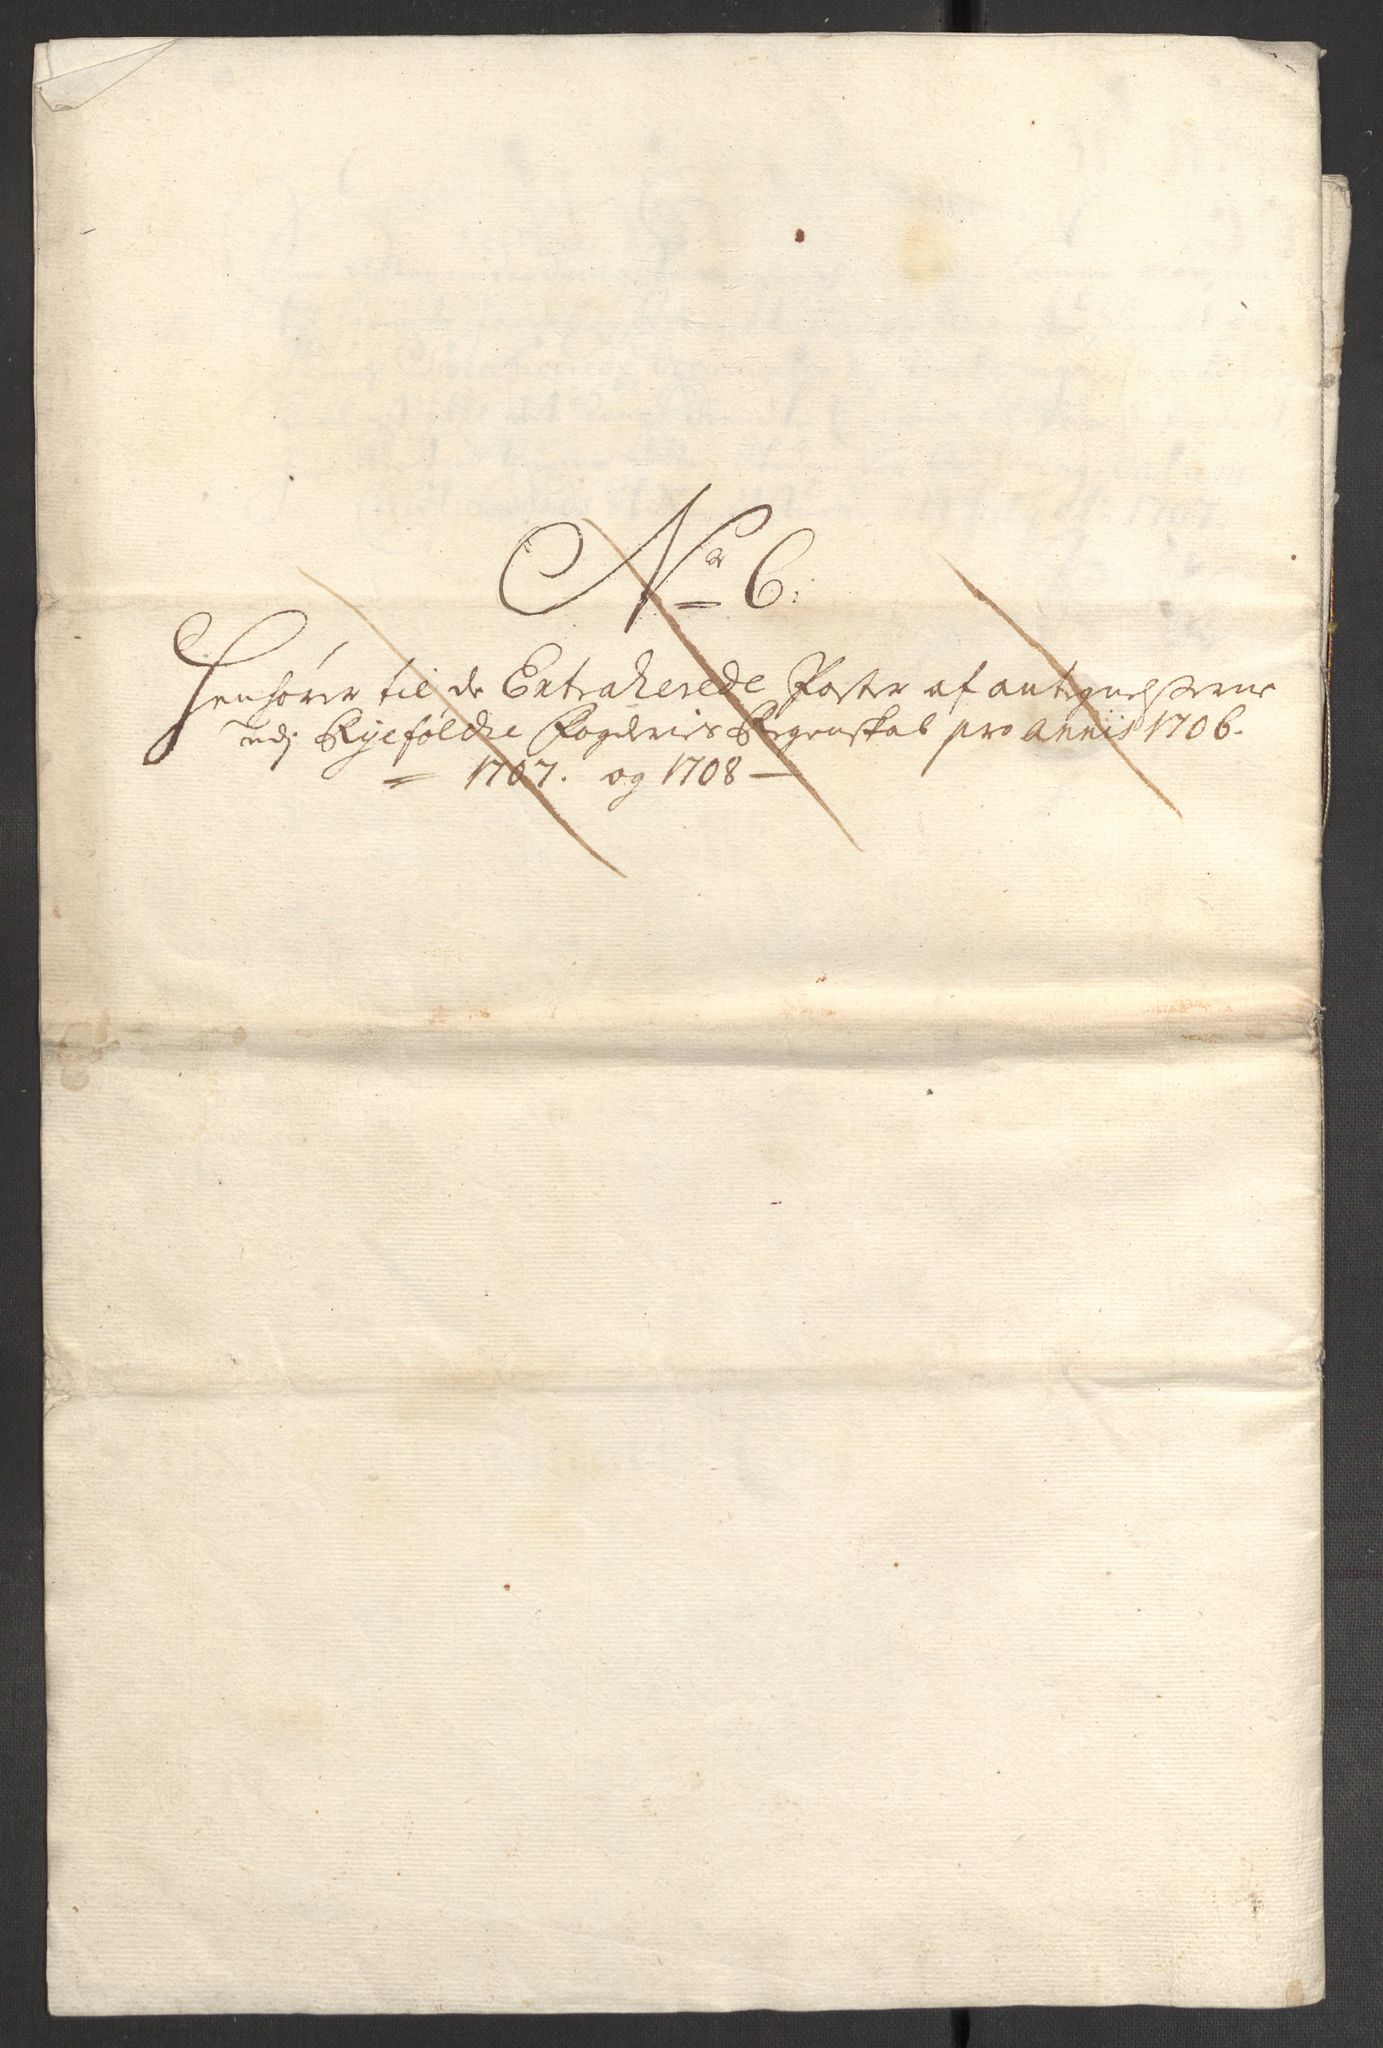 No 6:
Henhører til de Extraherede Poster af antegnelserne
udj Ryefølche Fogderies Regenskab pro Annis 1706.
1707. og 1708 —